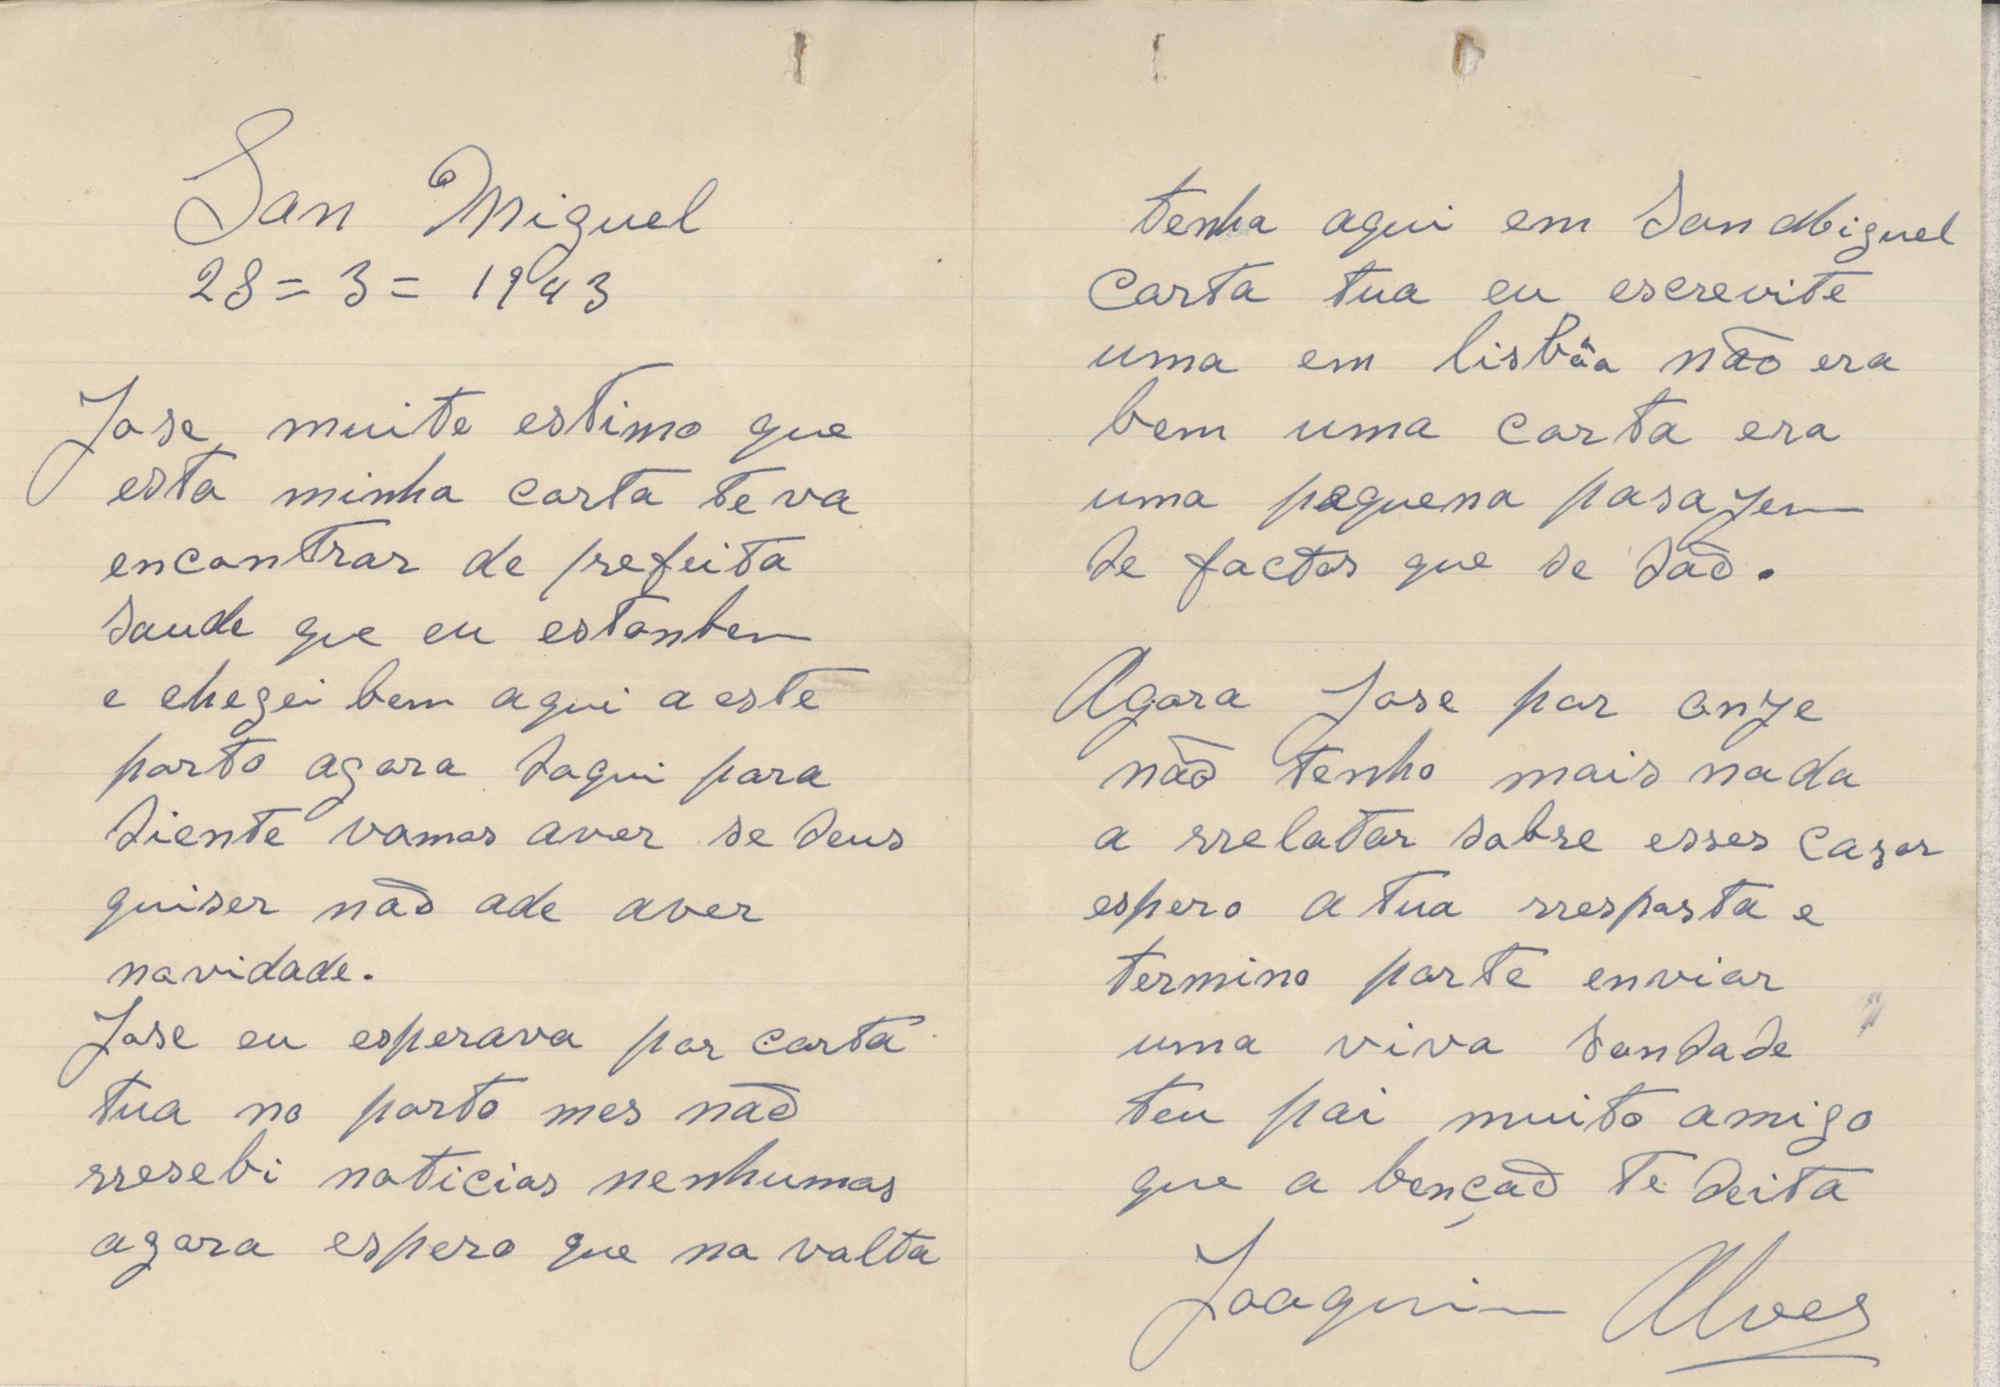 San Miguel
28=3=1943
Jose muite estimo que
esta minha carta te va
encontrar de prefeita
saude que eu estonbem
e chegei bem aqui a este
porto agora daqui para
diente vamos aver se deus
quiser não ade aver
novidade.
Jose eu esperava por carta
tua no porto mes não
rresebi noticias nenhumas
agora espero que na volta
tenha aqui em San Miguel
carta tua eu escrevite
uma em lisbôa não era
bem uma carta era
uma pequena pasajem
de factos que se dão.
Agora Jose por onje
não tenho mais nada
a rrelatar sobre esses casos
espero a tua rresposta e
termino porte enviar
uma viva sondade
teu pai muito amigo
que a benção te deita
Joaquim Alves